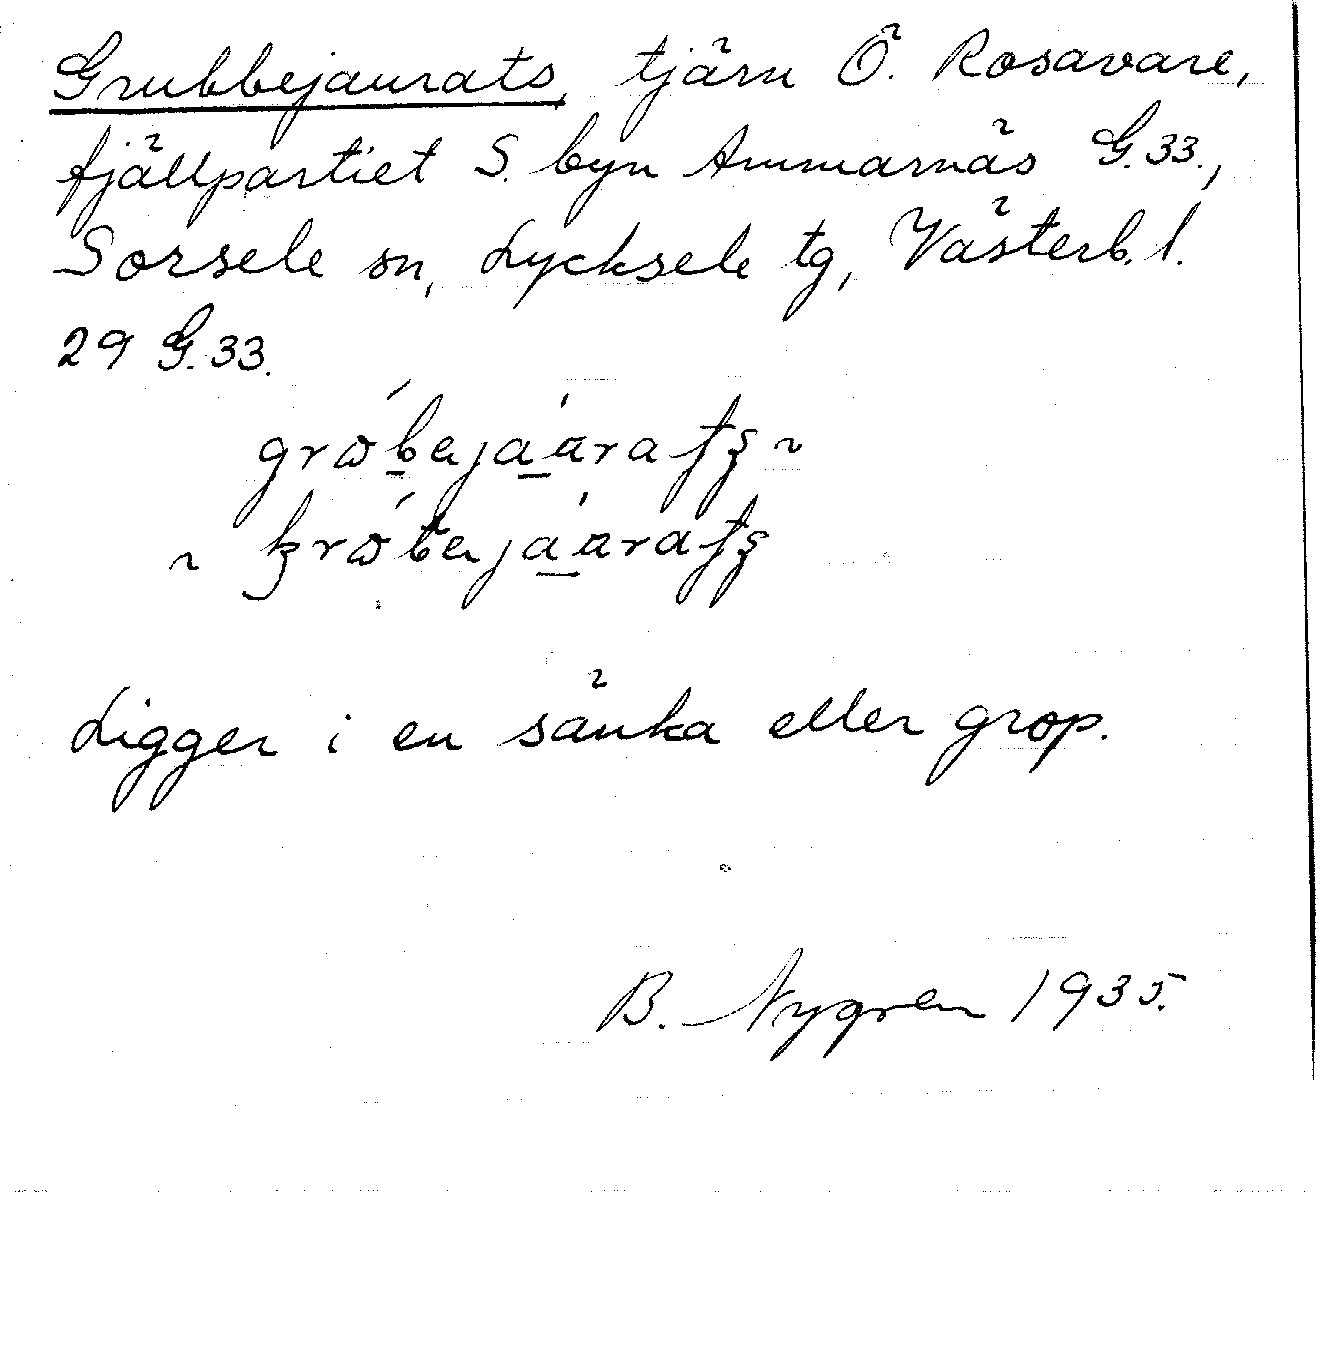 Grubbejaurats, tjärn Ö. Rosavare,
fjällpartiet S. byn Ammarnäs G.33.,
Sorsele sn, Lycksele tg, Västerb. l.
29 G.33.
Ligger i en sänka eller grop.
B. Nygren 1935.